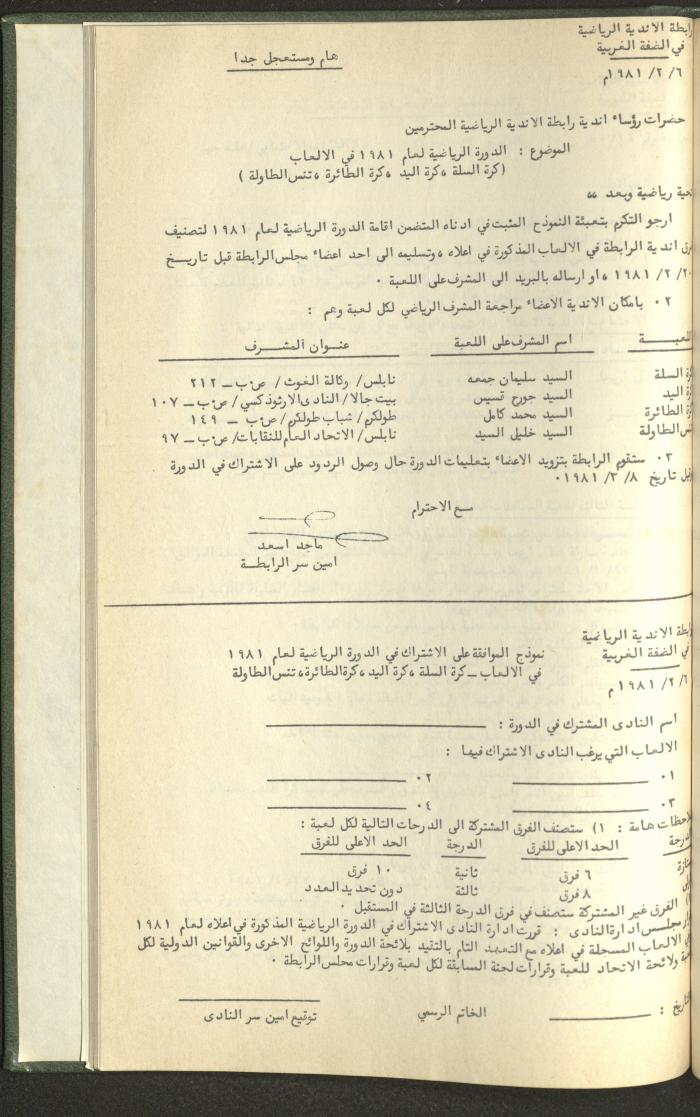 رابطة الاندية الرياضية
في الضفة الغربية
٦/ ٢/ ١٩٨١م
هام ومستعجل جدا
حضرات رؤساء اندية رابطة الاندية الرياضية المحترمين
الموضوع : الدورة الرياضية لعام ١٩٨١ في الالعاب
(كرة السلة ،كرة اليد ،كرة الطائرة ،تنس الطاولة )
تحية رياضية وبعد ،،
ارجو التكرم بتعبئة النموذج المثبت في ادناه المتضمن اقامة الدورة الرياضية لعام ١٩٨١ لتصنيف
فرق اندية الرابطة في الالعاب المذكورة في اعلاه ،وتسليمه الى احد اعضاء مجلس الرابطة قبل تاريـــخ
٢٠/ ٢/ ١٩٨١ ،او ارساله بالبريد الى المشرف على اللعبة ٠
٢٠ بامكان الاندية الاعضاء مراجعة المشرف الرياضي لكل لعبة وهم :
اللعبــــــة اسم المشرف على اللعبة عنــوان المشــرف
كرة السلة السيد سليمان جمعه نابلس/ وكالة الغوث/ ص٠ب ــ ٢١٢
كرة اليد السيد جورج قسيس بيت جالا/ النادى الارثوذكسي/ ص٠ب ــ ١٠٧
كرة الطائرة السيد محمد كامل طولكرم/ شباب طولكرم/ ص٠ب ــ ١٤٩
تنس الطاولة السيد خليل السيد نابلس/ الاتحاد العام للنقابات/ ص٠ب ــ ٩٧
٣٠ ستقوم الرابطة بتزويد الاعضاء بتعليمات الدورة حال وصول الردود على الاشتراك في الدورة
وقبل تاريخ ٨/ ٣/ ١٩٨١٠
مـع الاحترام
ماجد اسعد
امين سر الرابطــة
رابطة الاندية الرياضية
في الضفة الغربية
٦/ ٢/ ١٩٨١م
نموذج الموافقة على الاشتراك في الدورة الرياضية لعام ١٩٨١
في الالعاب ــ كرة السلة ،كرة اليد ،كرة الطائرة ،تنس الطاولة
اسم النادى المشترك في الدورة :
الالعاب التي يرغب النادى الاشتراك فيها :
١٠ ٢٠
٣٠ ٤٠
ملاحظات هامة : ١) ستصنف الفرق المشتركة الى الدرجات التالية لكل لعبة :
الدرجة الحد الاعلى للفرق الدرجة الحد الاعلى للفرق
ممتازة ٦ فرق ثانية ١٠ فرق
٨ فرق ثالثة دون تحديد العدد
الفرق غير المشتركة ستصنف في فرق الدرجة الثالثة في المستقبل ٠
قرار مجلس ادارة النادى : قررت ادارة النادى الاشتراك في الدورة الرياضية المذكورة في اعلاه لعام ١٩٨١
في الالعاب المسجلة في اعلاه مع التعهد التام بالتقيد بلائحة الدورة واللوائح الاخرى والقوانين الدولية لكل
لعبة ولائحة الاتحاد للعبة وقرارات لجنة المسابقة لكل لعبة وقرارات مجلس الرابطة ٠
التاريخ : الخاتم الرسمي توقيع امين سر النادى